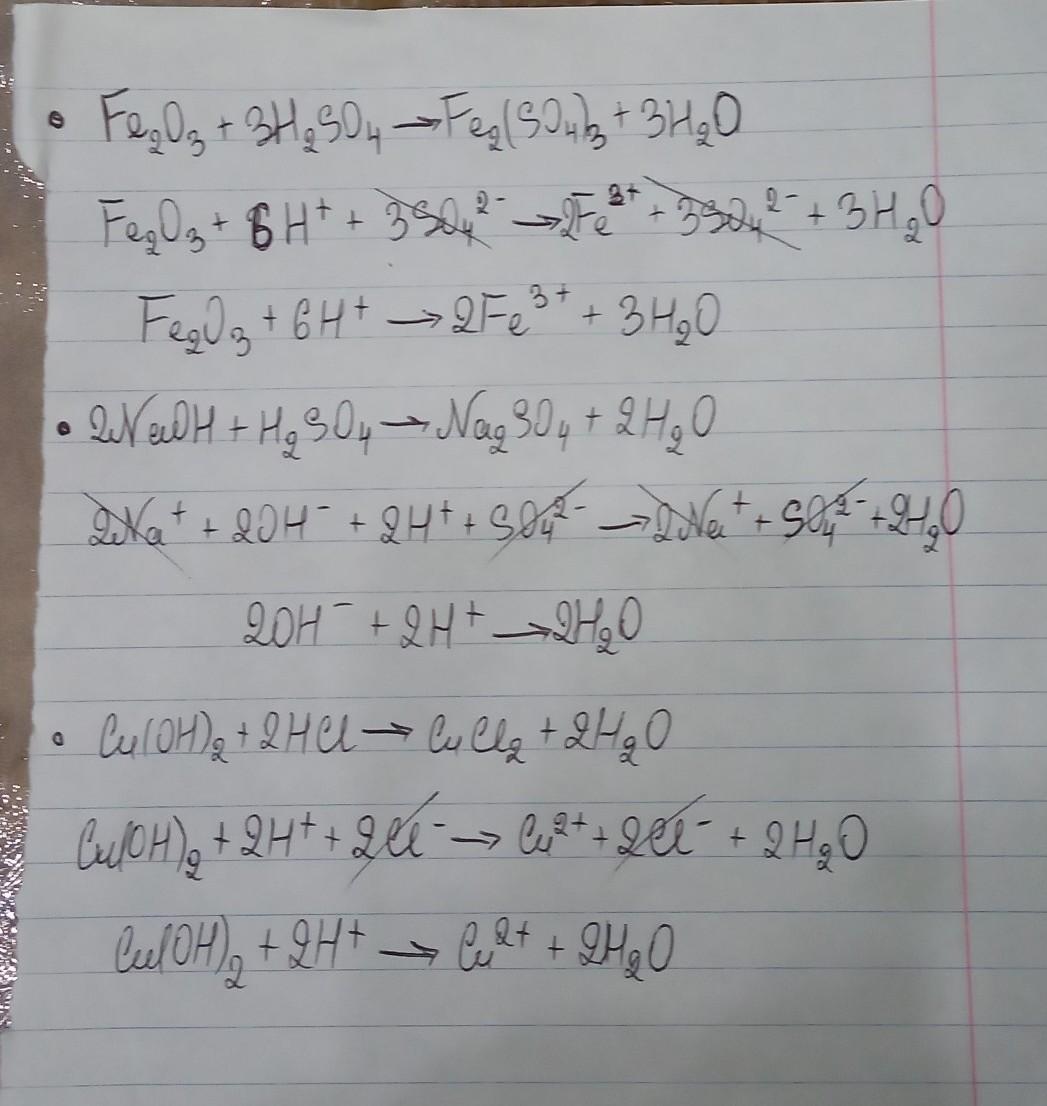 • Fe₂O₃ + 3H₂SO₄ → Fe₂(SO₄)₃ + 3H₂O
Fe₂O₃ + 6H⁺ + 3SO₄²⁻ → 2Fe³⁺ + 3SO₄²⁻ + 3H₂O
Fe₂O₃ + 6H⁺ → 2Fe³⁺ + 3H₂O
• 2NaOH + H₂SO₄ → Na₂SO₄ + 2H₂O
2Na⁺ + 2OH⁻ + 2H⁺ + SO₄²⁻ → 2Na⁺ + SO₄²⁻ + 2H₂O
2OH⁻ + 2H⁺ → 2H₂O
• Cu(OH)₂ + 2HCl → CuCl₂ + 2H₂O
Cu(OH)₂ + 2H⁺ + 2Cl⁻ → Cu²⁺ + 2Cl⁻ + 2H₂O
Cu(OH)₂ + 2H⁺ → Cu²⁺ + 2H₂O